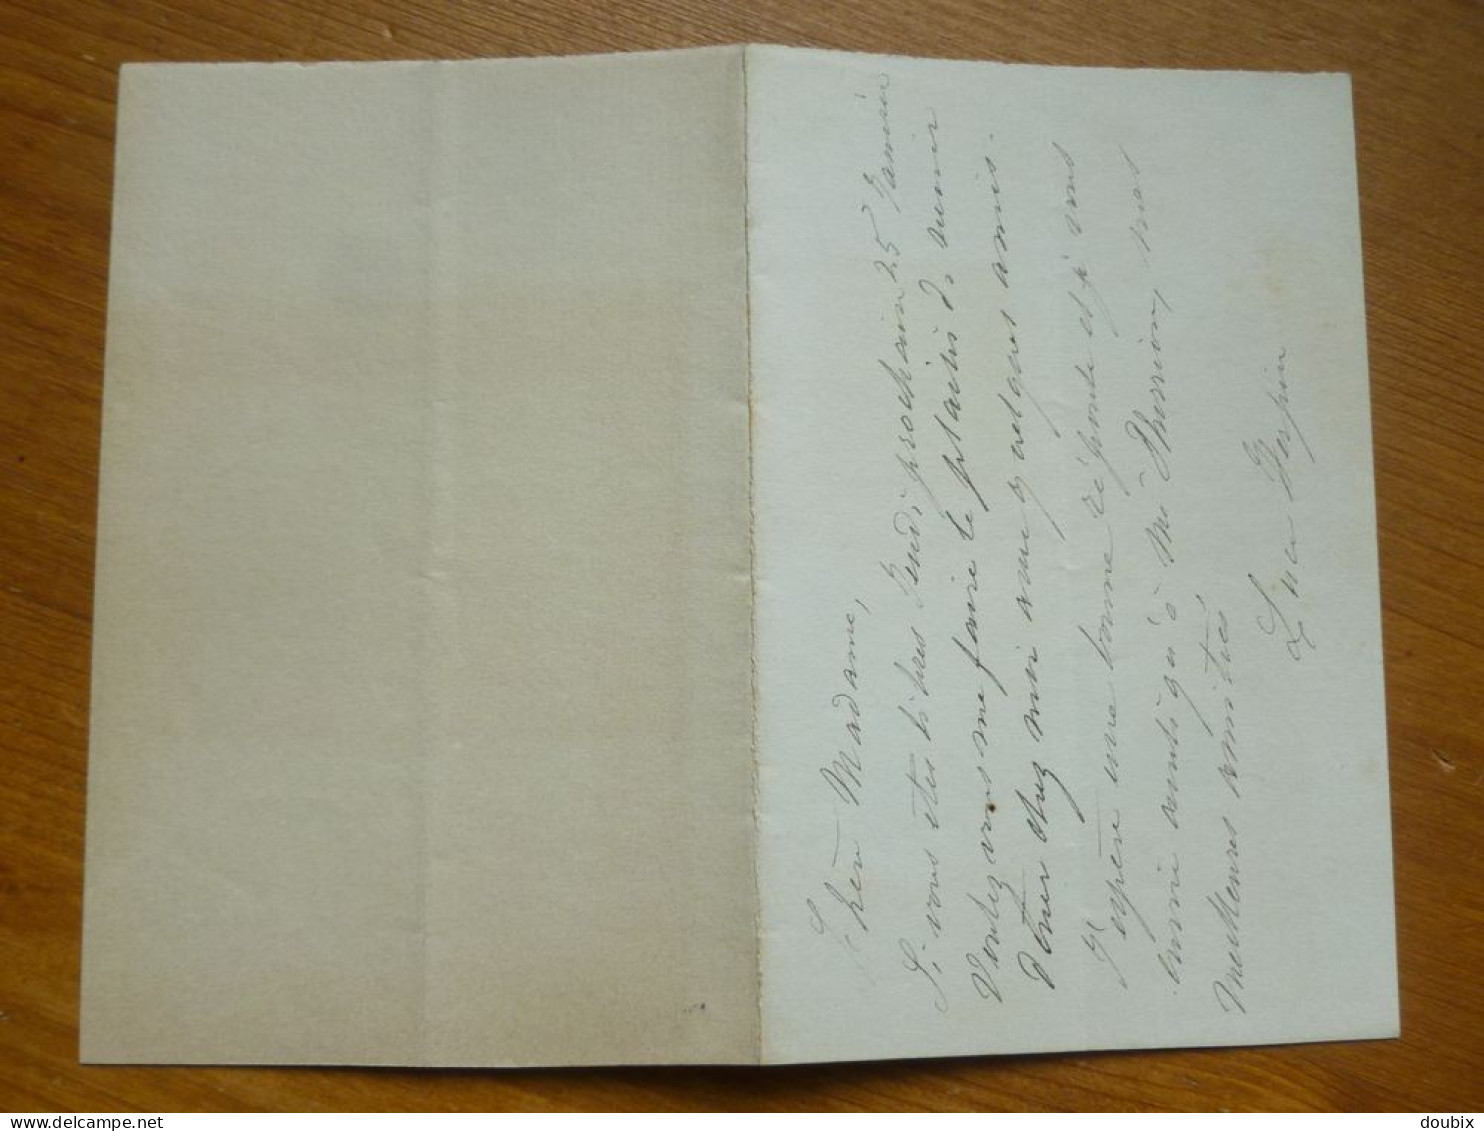 Chère Madame,
Si vous êtes libres Jeudi prochain 25 Janvier
Voulez vous me faire le plaisir de venir
Dîner chez moi avec quelques amis.
J'espère une bonne réponse et j'y vous
envoie ainsi qu'à Mr Thénion, mes
meilleures amitiés
Luca
delcampe.net
doubix